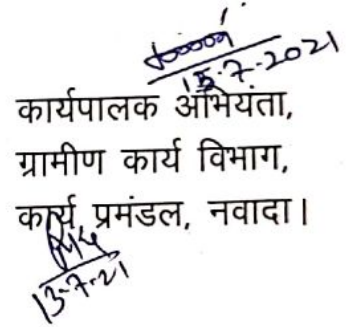 13-7-2021
कार्यपालक अभियंता,
ग्रामीण कार्य विभाग,
कार्य प्रमंडल, नवादा।
13-7-21